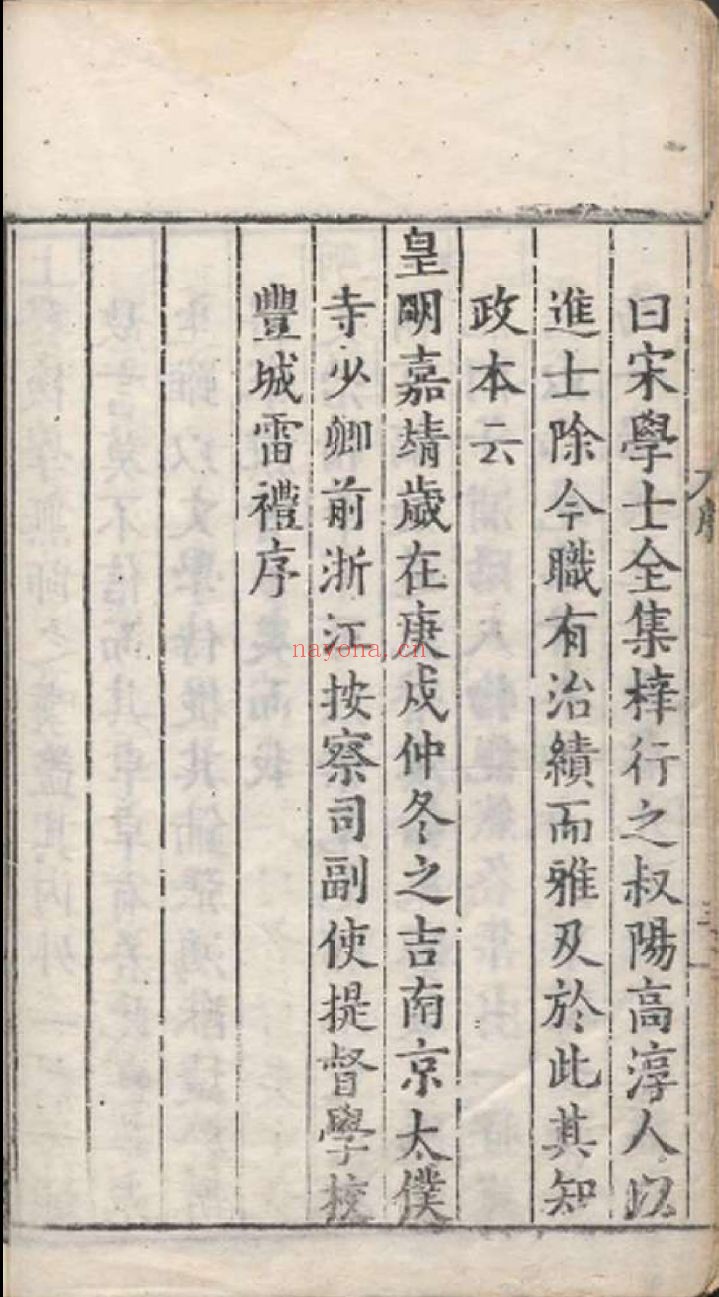 曰宋學士全集梓行之叔陽高淳人以
進士除今職有治績而雅及於此其知
政本云
皇明嘉靖歲在庚戌仲冬之吉南京太僕
寺少卿前浙江按察司副使提督學校
豐城雷禮序
nayona.cn